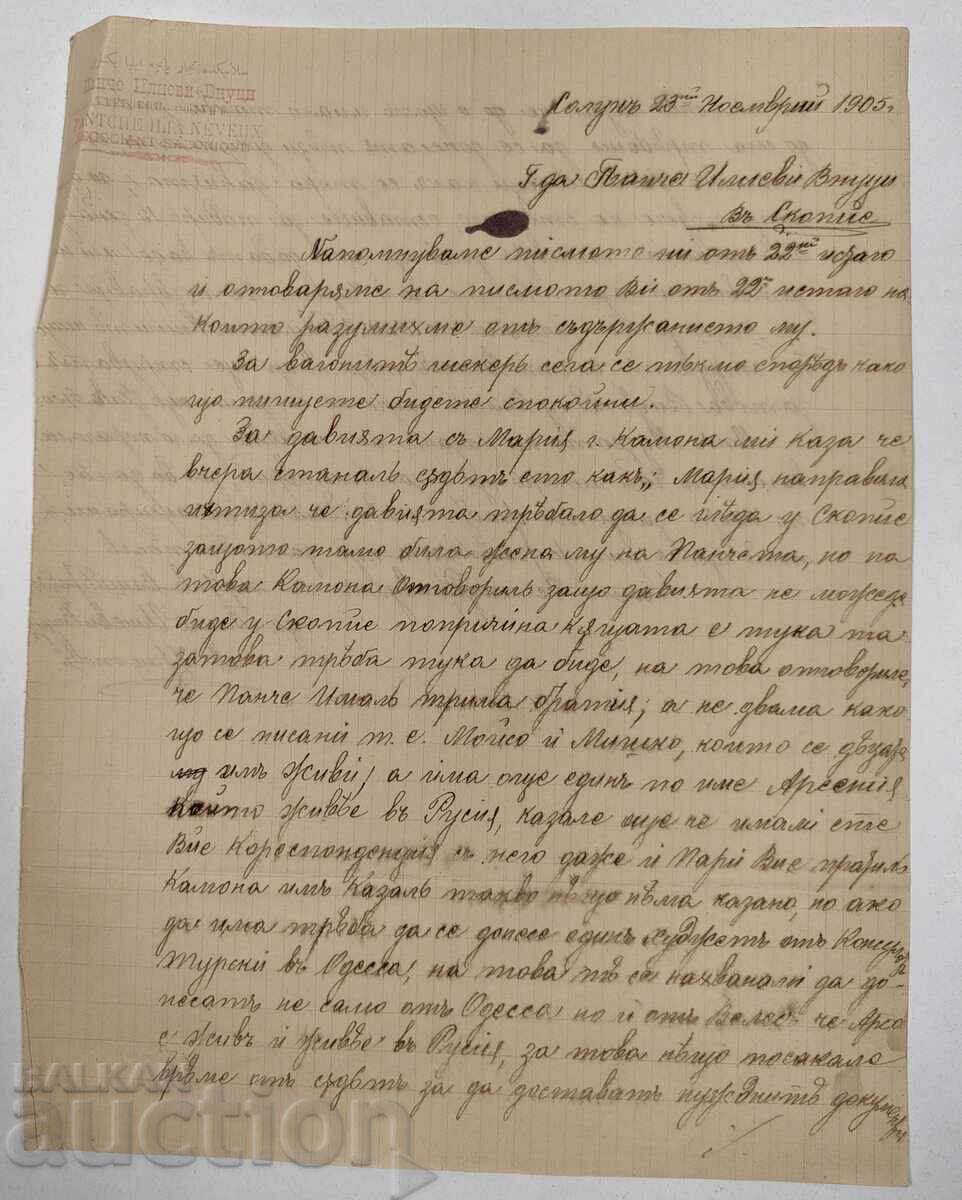 Панче Илиеви Внуци
PANTCHE ILIA NEVEUX
Солунъ 23ий Ноемврий 1905 г.
Г да Панче Илиеви Внуци
Въ Скопие
Напомнуваме писмото ни отъ 22ий истаго
и отговаряме на писмото Ви отъ 22ий истаго на
което разумихме отъ съдържанието му.
За вагонитѣ шекеръ сега се тъкмо споредъ како
що пишуете бидете спокойни.
За давията съ Мария г. Камона ми каза че
вчера станалъ сѫдътъ ето какъ„ Мария направила
итиза че давията трѣбало да се гледа у Скопие
защото тамо била жена му на Панчета, но на
това Камона отговорилъ защо давията не може да
биде у Скопие попричина кѫщата е тука та
затова трѣба тука да биде, на това отговориле,
че Панче ималъ трима братия, а не двама како
що се писани т. е. Мойсо и Мишко, които се дѣцата
имъ живи, а има още единъ по име Арсения
който живѣе въ Русия, казале още че имали сте
Вие Кореспонденция съ него даже и Пари Вие пратилъ
Камона имъ Казалъ такво нѣщо нѣма казано, но ако
да има трѣба да се донесе единъ худжетъ отъ Консулъ
Турский въ Одесса, на това тѣ се нахванали да до-
несатъ не само отъ Одесса но и отъ Велес- че Арсо
е живъ и живѣе въ Русия, за това нѣщо посакале
врѣме отъ сѫдътъ за да доставатъ нужнитѣ документи
BALKAN
аукцион